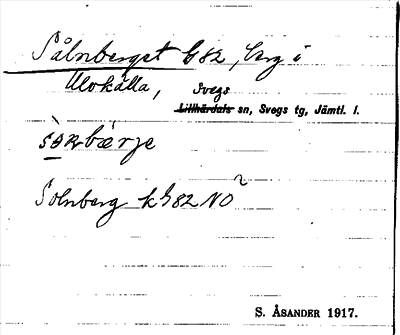 Sålnberget G82, berg i
Ulvkälla, Svegs
Lillhärdals sn, Svegs tg, Jämtl. l.
Solnberg kG82 NO²
S. ÅSANDER 1917.